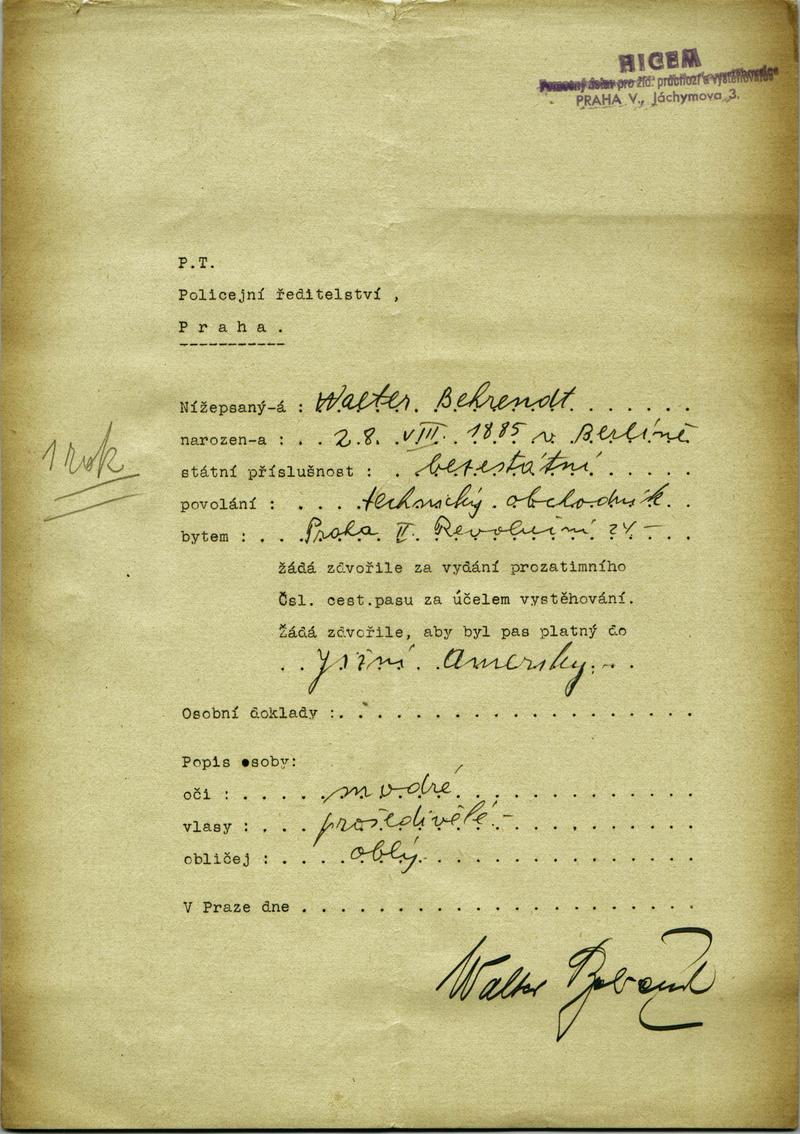 HICEM
Pomocný ústav pro žid. průchozí a vystěhovalce
PRAHA V., Jáchymova 3.
P.T.
Policejní ředitelství ,
P r a h a .
Nížepsaný-á : Walter Behrendt
narozen-a : 28. VIII. 1885 v Berlíně
1 rok
státní příslušnost : bezestátní
povolání : technický obchodník
bytem : Praha II. Revoluční 24
žádá zdvořile za vydání prozatimního
Čsl. cest.pasu za účelem vystěhování.
Žádá zdvořile, aby byl pas platný do
Jižní Ameriky
Osobní doklady :
Popis osoby:
oči : modré
vlasy : prošedivělé
obličej : oblý
V Praze dne
Walter Behrendt